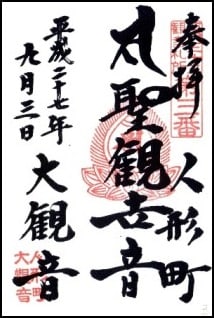 奉拝
人形町
聖観世音
大観音
平成二十七年
九月三日
第三番
人形町
大観音